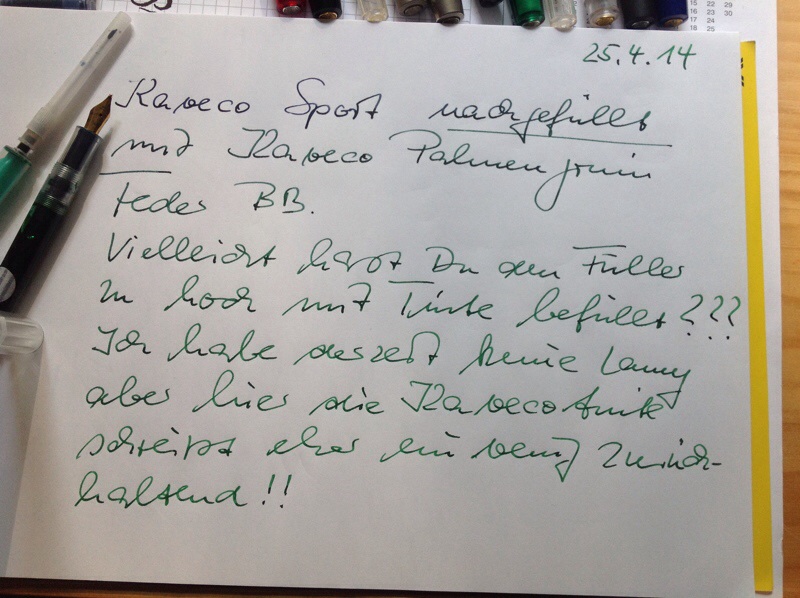 25.4.14
Kaweco Sport nachgefüllt
mit Kaweco Palmengrün
Feder BB.
Vielleicht hast Du den Füller
zu hoch mit Tinte befüllt???
Ich habe derzeit keine Lamy
aber hier die Kaweco tinte
schreibt eher ein wenig zurück-
haltend!!
15 22 29
16 23 30
17 24
18 25